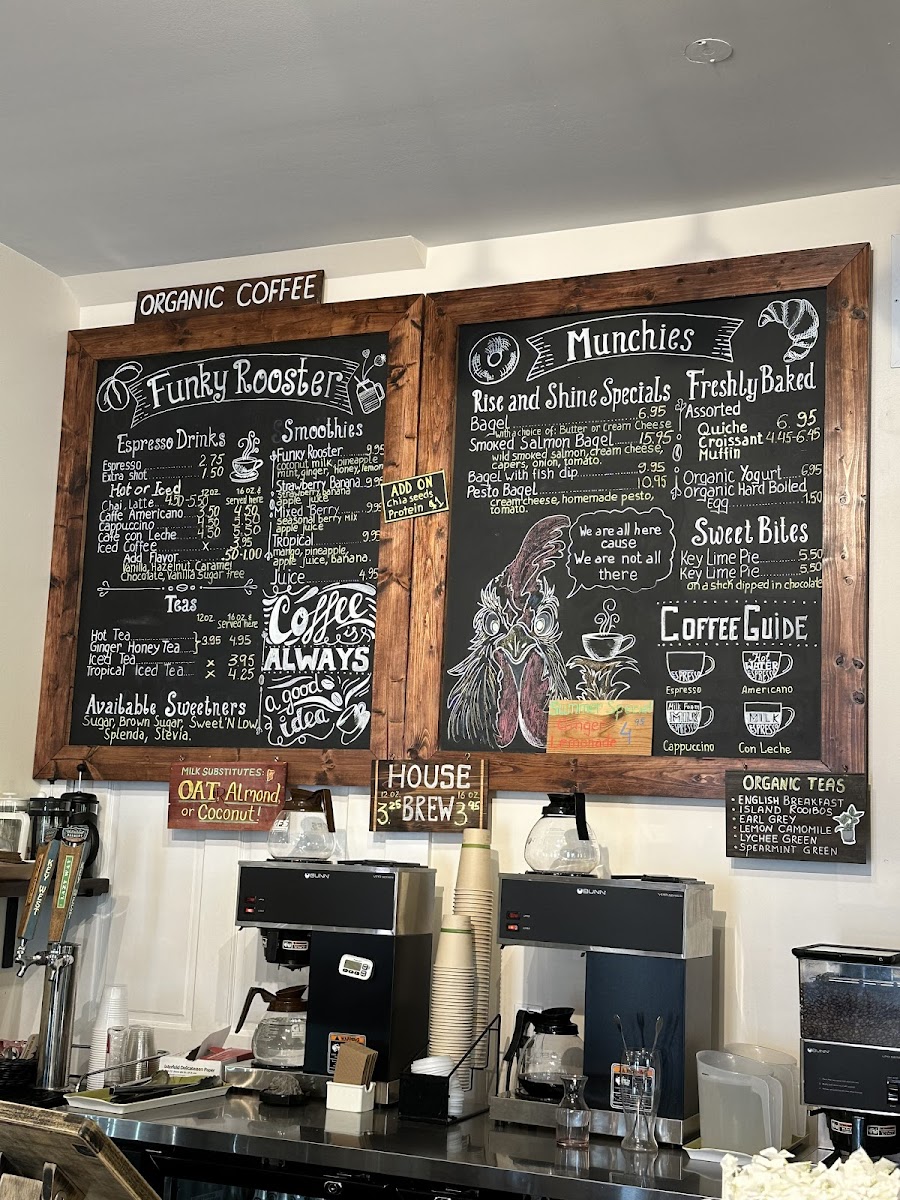 ORGANIC COFFEE
Funky Rooster
Espresso Drinks
Espresso 2.75
Extra shot 1.50
Hot or Iced 12oz. 16 oz. & Served here
Chai Latte 4.50-5.50
Caffe Americano 3.50 4.50
Cappuccino
Cafe con Leche 4.50
Iced Coffee x 3.95
Add Flavor .50-1.00
Vanilla, Hazelnut, Caramel
Chocolate, Vanilla Sugar free
Teas
12oz 16 oz. & served here
Hot Tea
Ginger Honey Tea 3.95 4.95
Iced Tea x 3.95
Tropical Iced Tea x 4.25
Available Sweetners
Sugar, Brown Sugar, Sweet'N Low,
Splenda, Stevia.
Smoothies
Funky Rooster 9.95
coconut milk, pineapple
mint, ginger, honey, lemon
Strawberry Banana 9.95
strawberry, banana
apple juice
Mixed Berry 9.95
seasonal berry mix
apple juice
Tropical 9.95
mango, pineapple,
apple juice, banana.
Juice 4.95
Coffee
ALWAYS
a good
idea
ADD ON
Chia seeds
Protein $1
Munchies
Rise and Shine Specials
Bagel 6.95
with a choice of: Butter or Cream Cheese
Smoked Salmon Bagel 15.95
wild smoked salmon, cream cheese,
capers, onion, tomato.
Bagel with fish dip 9.95
Pesto Bagel 10.95
creamcheese, homemade pesto,
tomato.
We are all here
cause
We are not all
there
Freshly Baked
Assorted
Quiche 6.95
Croissant 4.45-6.45
Muffin
Organic Yogurt 6.95
Organic Hard Boiled
Egg 1.50
Sweet Bites
Key Lime Pie 5.50
Key Lime Pie 5.50
on a stick dipped in chocolate
COFFEE GUIDE
ESPRESSO
Espresso
Hot
WATER
ESPRESSO
Americano
Milk Foam
MILK
ESPRESSO
Cappuccino
MILK
ESPRESSO
Con Leche
Ginger 4.95
Lemonade
MILK SUBSTITUTES:
OAT, Almond,
or Coconut!
HOUSE
BREW
12 oz. 3.25
16 oz. 3.95
ORGANIC TEAS
• ENGLISH BREAKFAST
• ISLAND ROOIBOS
• EARL GREY
• LEMON CAMOMILE
• LYCHEE GREEN
• SPEARMINT GREEN
BUNN
BUNN
BUNN